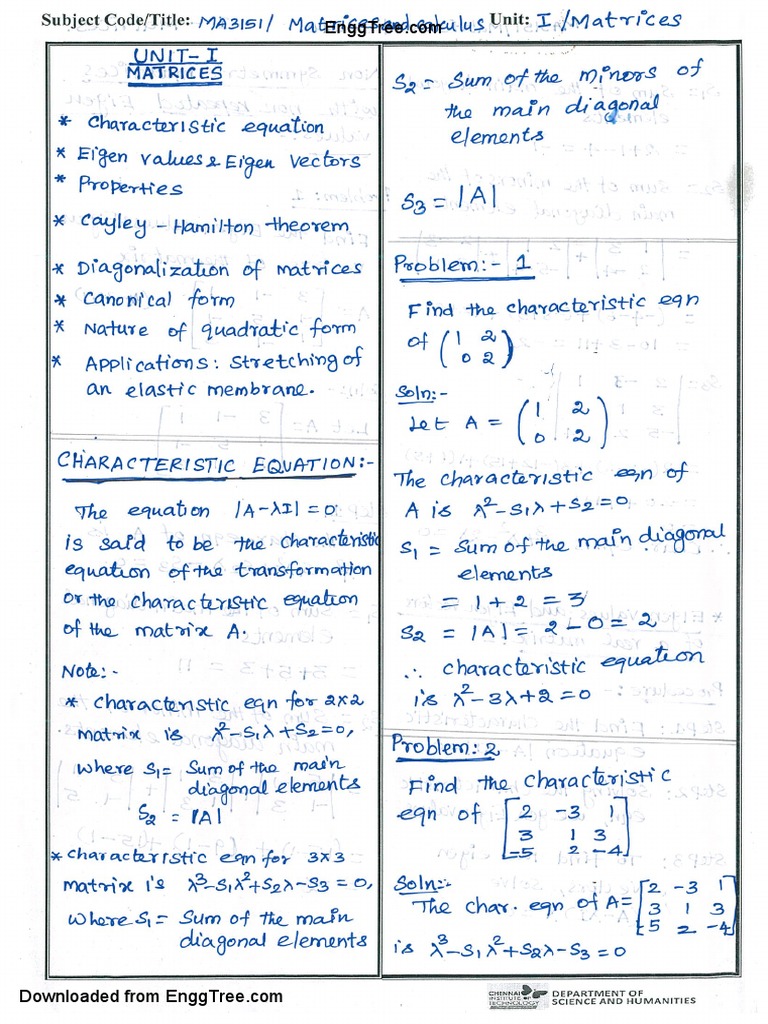 Subject Code/Title: MA3151/ Matrices and calculus Unit: I /Matrices
EnggTree.com
UNIT-I
MATRICES
* Characteristic equation
* Eigen values & Eigen vectors
* Properties
* Cayley - Hamilton theorem
* Diagonalization of matrices
* Canonical form
* Nature of quadratic form
* Applications: Stretching of
an elastic membrane.
CHARACTERISTIC EQUATION:-
The equation |A-λI|=0
is said to be the characteristic
equation of the transformation
or the characteristic equation
of the matrix A.
Note:-
* Characteristic eqn for 2x2
matrix is λ²-S₁λ+S₂=0,
where S₁= Sum of the main
diagonal elements
S₂ = |A|
* characteristic eqn for 3x3
matrix is λ³-S₁λ²+S₂λ-S₃=0,
where S₁= Sum of the main
diagonal elements
S₂= Sum of the minors of
the main diagonal
elements
S₃ = |A|
Problem:- 1
Find the characteristic eqn
of (1 2
0 2)
Soln:-
Let A = (1 2
0 2)
The characteristic eqn of
A is λ²-S₁λ+S₂=0
S₁ = Sum of the main diagonal
elements
= 1+2 = 3
S₂ = |A| = 2-0 = 2
∴ characteristic equation
is λ²-3λ+2=0
Problem: 2
Find the characteristic
eqn of [2 -3 1
3 1 3
-5 2 -4]
Soln:-
The char. eqn of A= [2 -3 1
3 1 3
-5 2 -4]
is λ³-S₁λ²+S₂λ-S₃=0
Downloaded from EnggTree.com
CHENNAI
INSTITUTE OF
TECHNOLOGY
DEPARTMENT OF
SCIENCE AND HUMANITIES